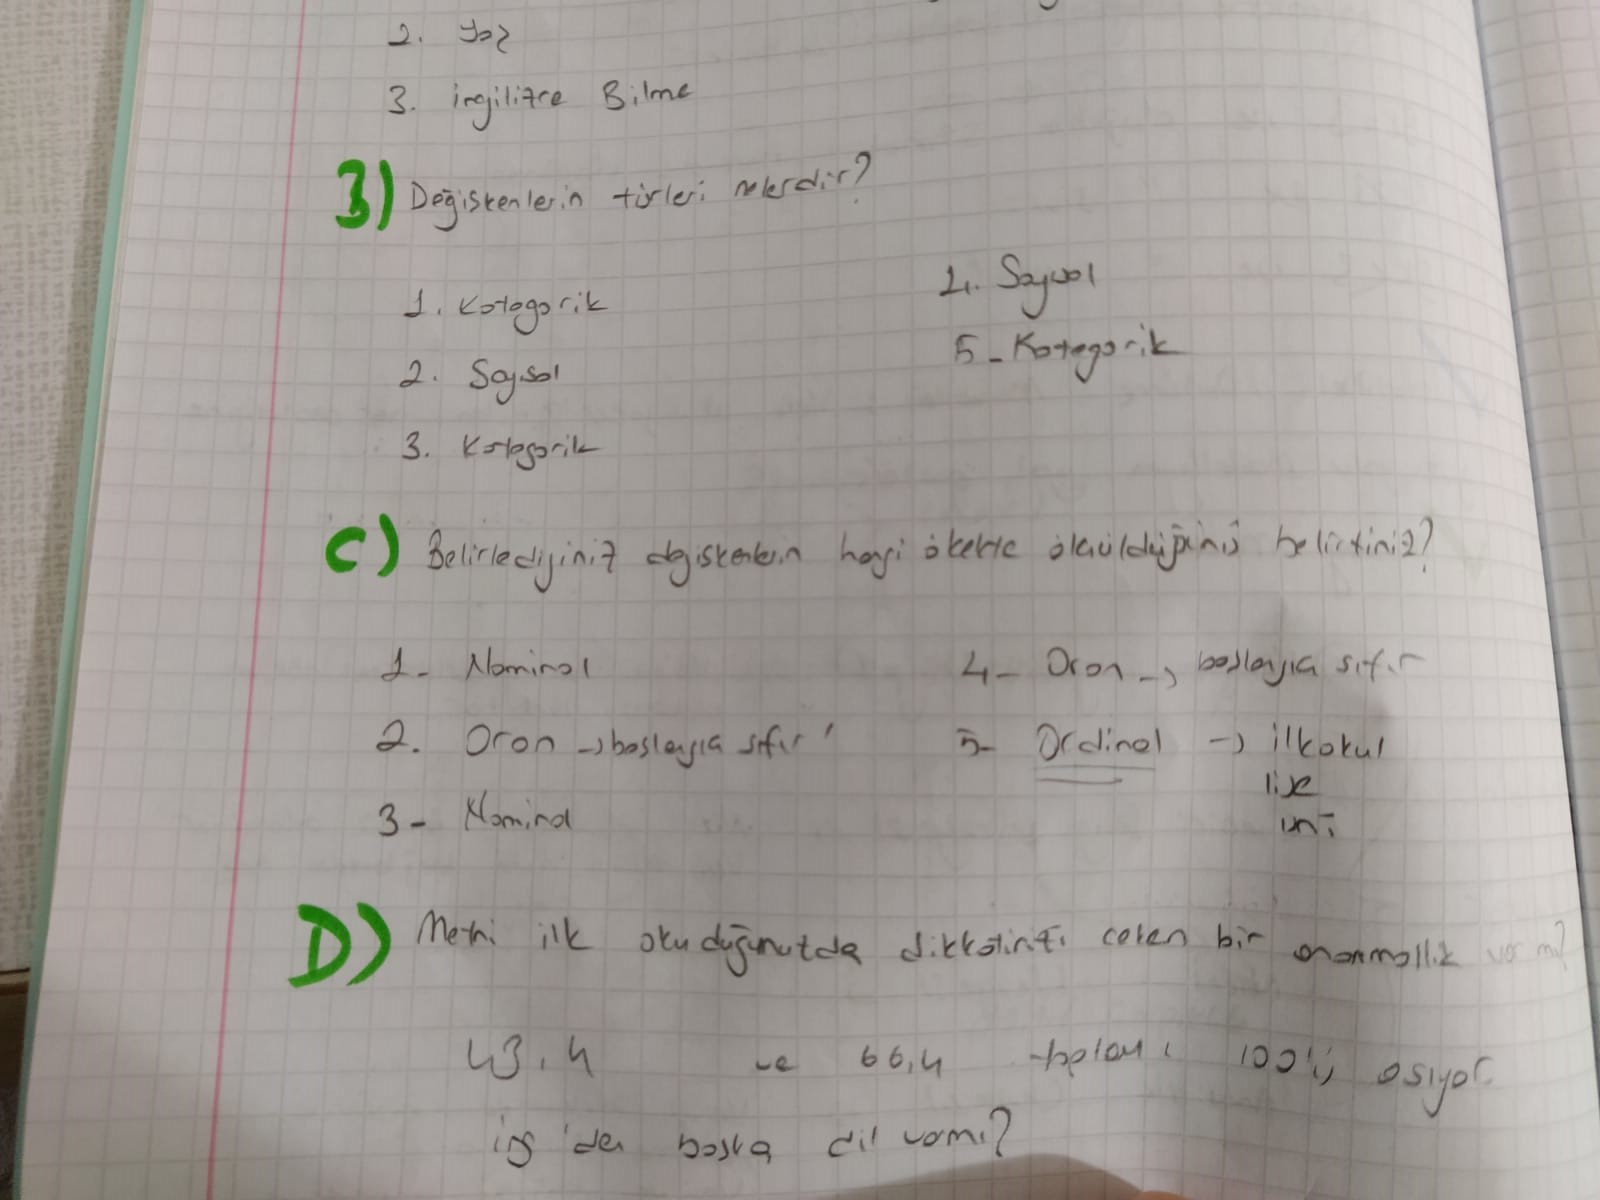 2. Yaş
3. ingilizce Bilme
B) Değişkenlerin türleri nelerdir?
1. Kategorik
2. Sayısal
3. Kategorik
4. Sayısal
5 - Kategorik
C) Belirlediğiniz değişkenlerin hangi ölçekte ölçüldüğünü belirtiniz?
1 - Nominal
2. Oran -> başlangıcı sıfır
3 - Nominal
4 - Oran -> başlangıcı sıfır
5 - Ordinal -> ilkokul
lise
üni
D) Metni ilk okuduğunuzda dikkatinizi çeken bir anormallik var mı?
43,4 ve 66,4 toplamı 100'ü aşıyor
ing'den başka dil varmı?